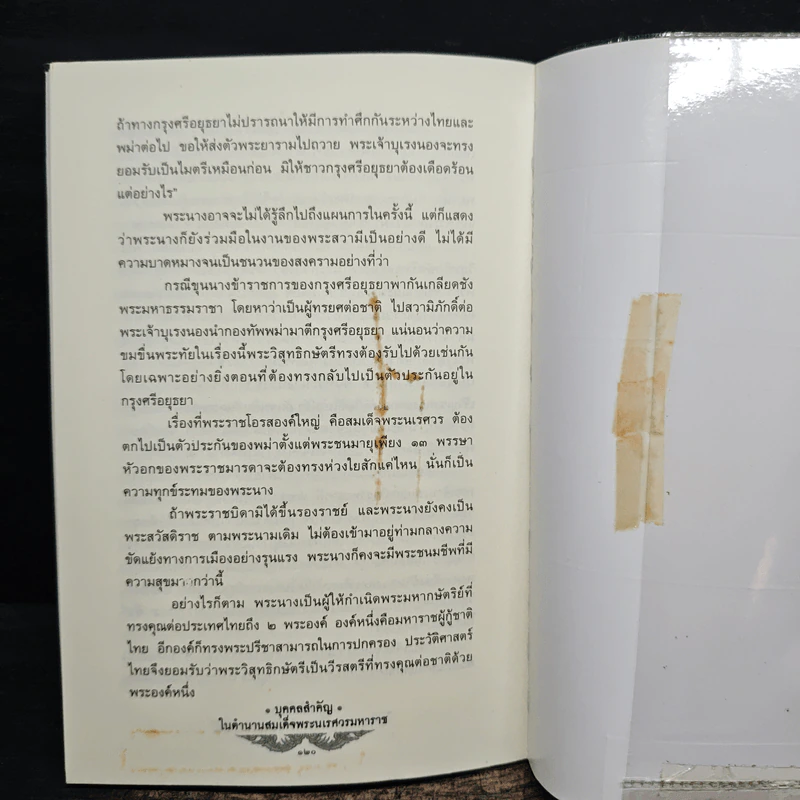 ถ้าทางกรุงศรีอยุธยาไม่ปรารถนาให้มีการทำศึกกันระหว่างไทยและ
พม่าต่อไป ขอให้ส่งตัวพระยารามไปถวาย พระเจ้าบุเรงนองจะทรง
ยอมรับเป็นไมตรีเหมือนก่อน มิให้ชาวกรุงศรีอยุธยาต้องเดือดร้อน
แต่อย่างไร"
พระนางอาจจะไม่ได้รู้ลึกไปถึงแผนการในครั้งนี้ แต่ก็แสดง
ว่าพระนางก็ยังร่วมมือในงานของพระสวามีเป็นอย่างดี ไม่ได้มี
ความบาดหมางจนเป็นชนวนของสงครามอย่างที่ว่า
กรณีขุนนางข้าราชการของกรุงศรีอยุธยาพากันเกลียดชัง
พระมหาธรรมราชา โดยหาว่าเป็นผู้ทรยศต่อชาติ ไปสวามิภักดิ์ต่อ
พระเจ้าบุเรงนองนำกองทัพพม่ามาตีกรุงศรีอยุธยา แน่นอนว่าความ
ขมขื่นพระทัยในเรื่องนี้พระวิสุทธิกษัตรีทรงต้องรับไปด้วยเช่นกัน
โดยเฉพาะอย่างยิ่งตอนที่ต้องทรงกลับไปเป็นตัวประกันอยู่ใน
กรุงศรีอยุธยา
เรื่องที่พระราชโอรสองค์ใหญ่ คือสมเด็จพระนเรศวร ต้อง
ตกไปเป็นตัวประกันของพม่าตั้งแต่พระชนมายุเพียง ๑๓ พรรษา
หัวอกของพระราชมารดาจะต้องทรงห่วงใยสักแค่ไหน นั่นก็เป็น
ความทุกข์ระทมของพระนาง
ถ้าพระราชบิดามิได้ขึ้นรองราชย์ และพระนางยังคงเป็น
พระสวัสดิราช ตามพระนามเดิม ไม่ต้องเข้ามาอยู่ท่ามกลางความ
ขัดแย้งทางการเมืองอย่างรุนแรง พระนางก็คงจะมีพระชนมชีพที่มี
ความสุขมากกว่านี้
อย่างไรก็ตาม พระนางเป็นผู้ให้กำเนิดพระมหากษัตริย์ที่
ทรงคุณต่อประเทศไทยถึง ๒ พระองค์ องค์หนึ่งคือมหาราชผู้กู้ชาติ
ไทย อีกองค์ก็ทรงพระปรีชาสามารถในการปกครอง ประวัติศาสตร์
ไทยจึงยอมรับว่าพระวิสุทธิกษัตรีเป็นวีรสตรีที่ทรงคุณต่อชาติด้วย
พระองค์หนึ่ง
• บุคคลสำคัญ •
ในตำนานสมเด็จพระนเรศวรมหาราช
๑๒๐